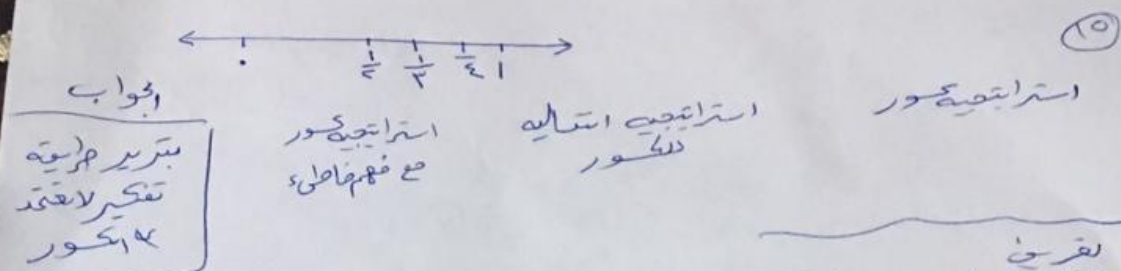 ١٥
٠ ١/٢ ١/٣ ١/٤ ١
استراتيجية كسور
استراتيجية انتقالية
للكسور
استراتيجية كسور
مع فهم خاطىء
الجواب
بتبرير طريقة
تفكير لا تعتمد
الكسور